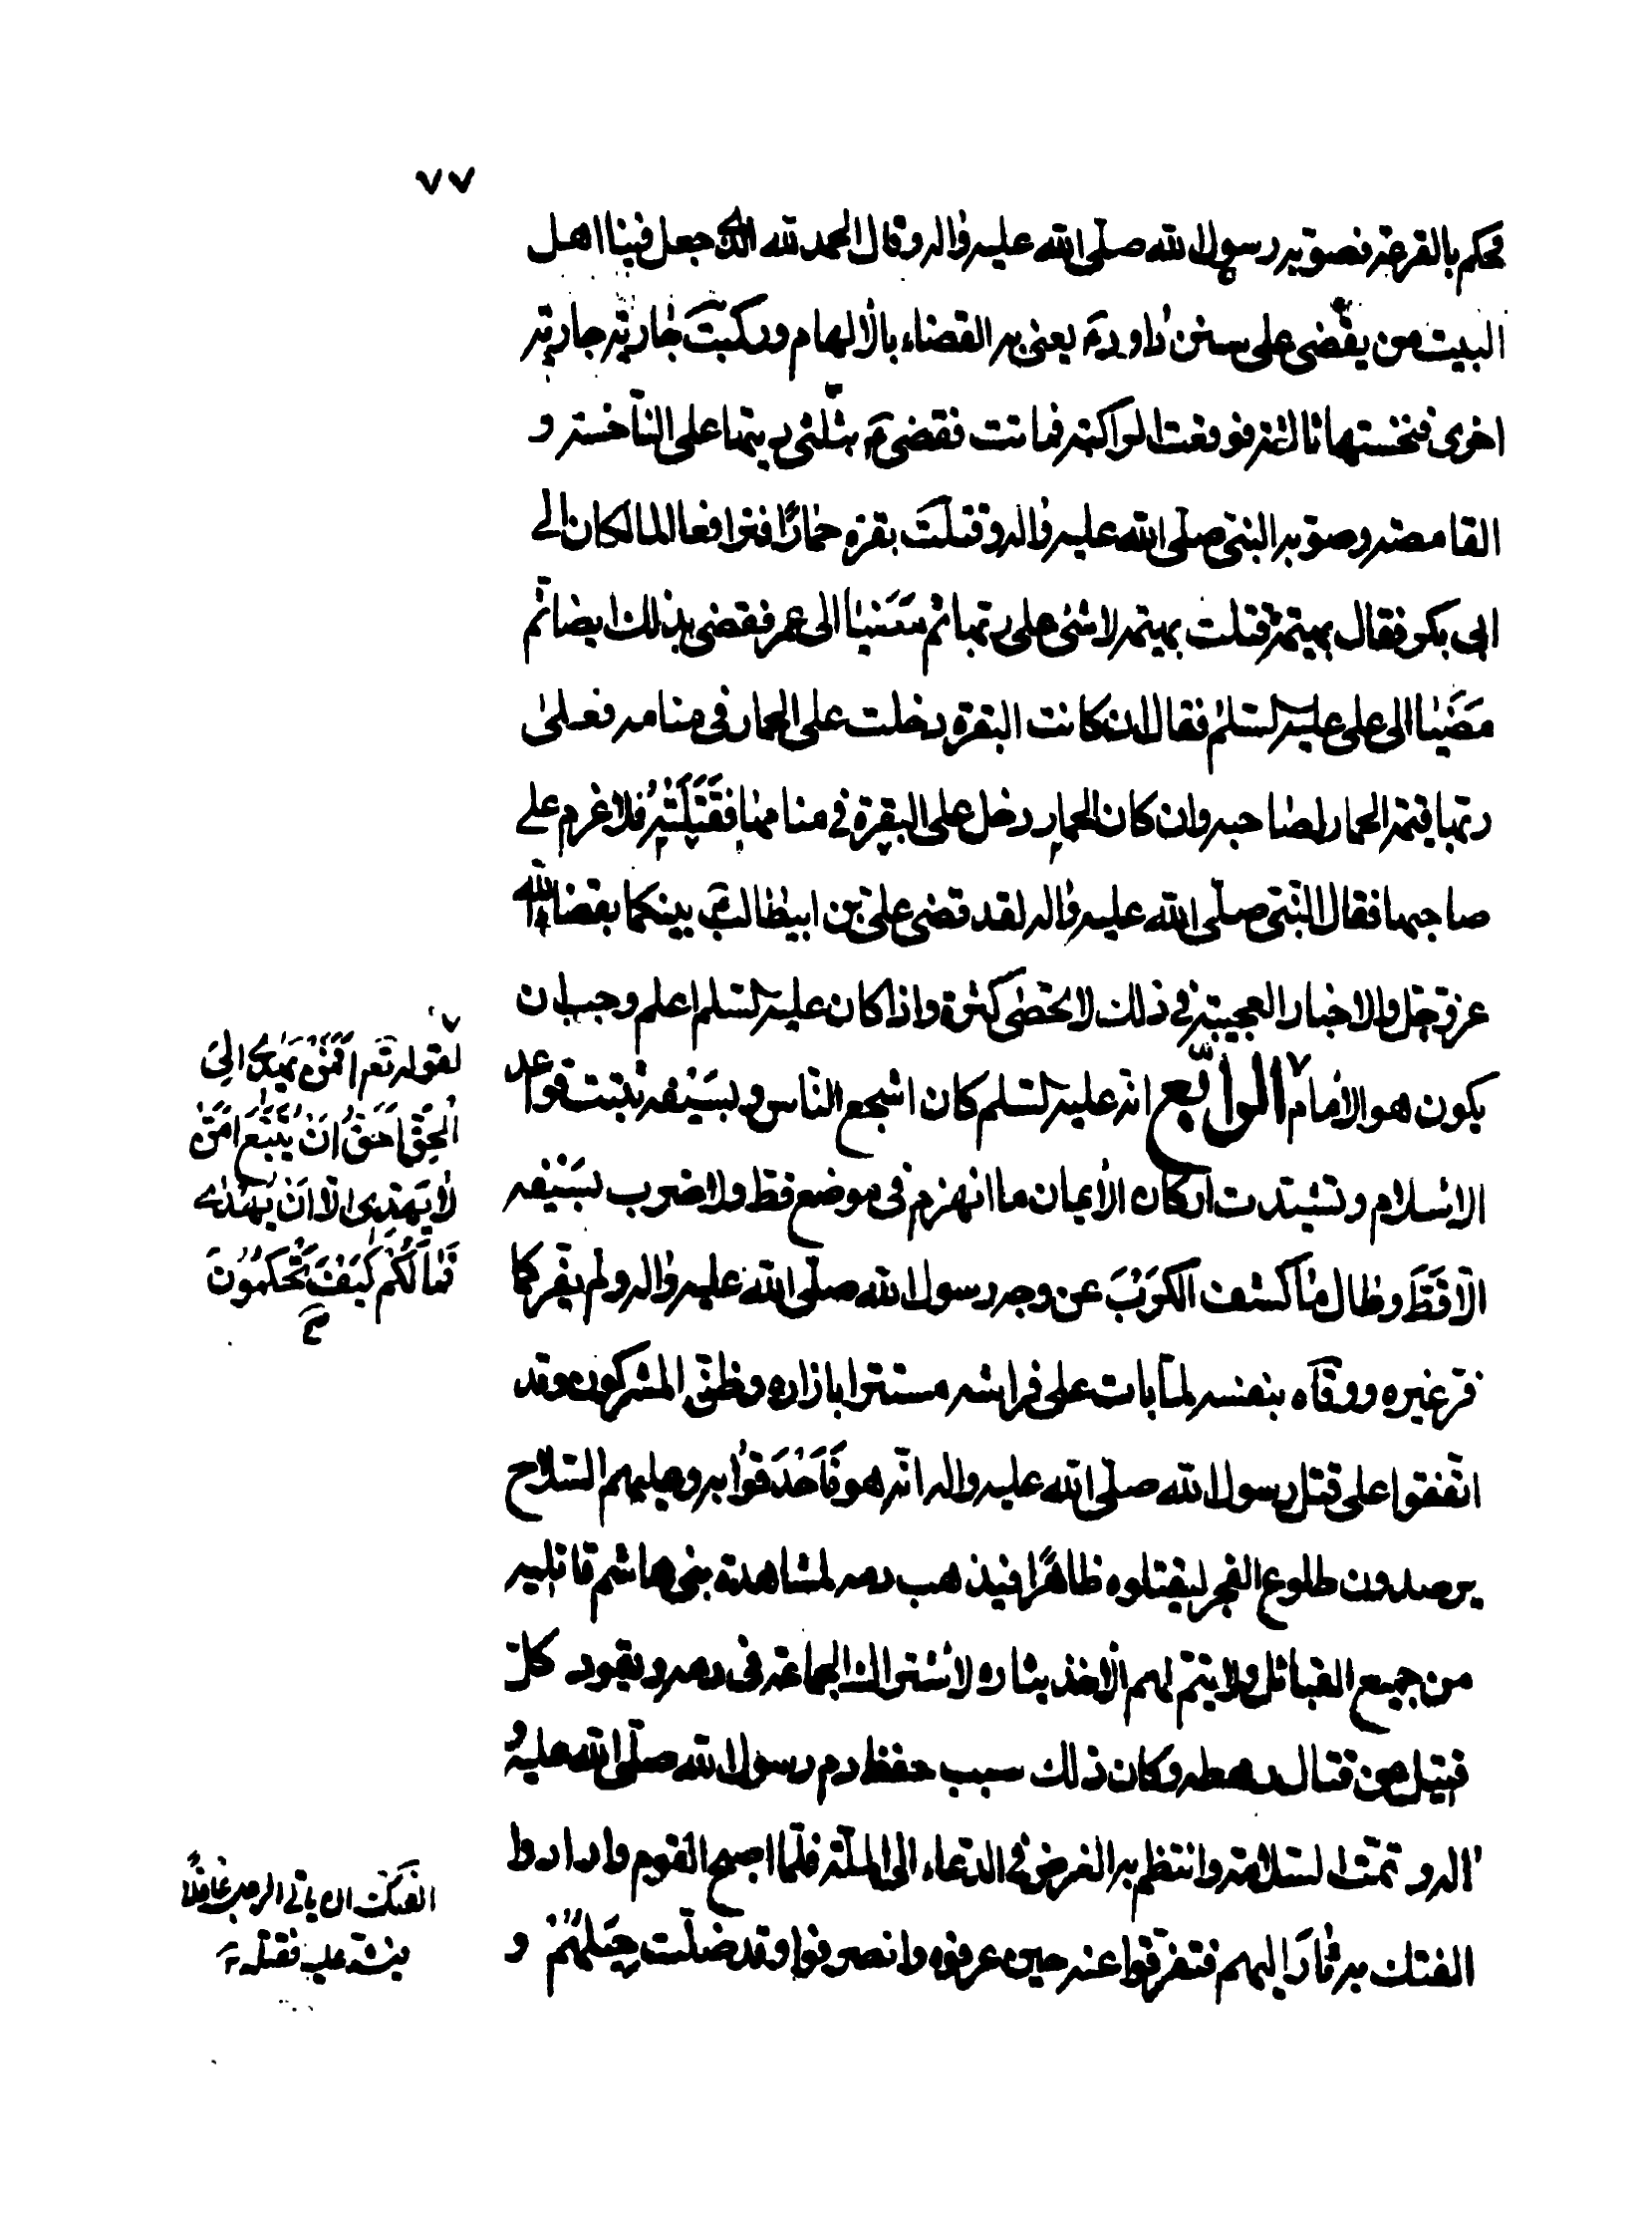 ٧٧
فحكم بالقرعة فصوّبه رسول الله صلّى الله عليه وآله وقال الحمد لله الذى جعل فينا اهل
البيت من يقضى على سنن داود ع يعنى به القضاء بالالهام وركبت جارية جارية
اخرى فنخستها ثالثة فوقعت الراكبة فماتت فقضى ع بثلثى ديتها على النّاخسة و
القامصة وصوّبه النبىّ صلّى الله عليه وآله وقتلت بقرة حمارًا فترافعا المالكان الى
ابى بكر فقال بهيمة قتلت بهيمة لا شىء على ربّها ثم مَضَيَا الى عمر فقضى بذلك ايضا ثم
مَضَيَا الى على عليه السّلم فقال ان كانت البقرة دخلت على الحمار فى منامه فعلى
ربّها قيمة الحمار لصاحبه وان كان الحمار دخل على البقرة فى منامها فَقَتَلَتْهُ فلا غرم على
صاحبها فقال النّبىّ صلّى الله عليه وآله لقد قضى علىّ بن ابيطالب ع بينكما بقضاء الله
عزّوجلّ والاخبار العجيبة فى ذلك لا تحصى كثرة واذا كان عليه السّلم اعلم وجب ان
يكون هو الامام ٧ الرّابع انّه عليه السّلم كان اشجع النّاس وبسَيْفه ثبتت قواعد
الاسلام وتشيّدت اركان الايمان ما انهزم فى موضع قطّ ولا ضرب بسَيْفه
الّا قَطَّ وطال ما كشف الكَرْبَ عن وجه رسول الله صلّى الله عليه وآله ولم يفرّ كما
فرّ غيره ووقاه بنفسه لمّا بات على فراشه مستترا بازاره وظنّ المشركون وقد
اتّفقوا على قتل رسول الله صلّى الله عليه وآله انّه هو فَاَحْدَقوا به وعليهم السّلاح
يرصدون طلوع الفجر ليقتلوه ظاهرًا فيذهب دمه لمشاهدة بنى هاشم قاتليه
من جميع القبائل ولا يتمّ لهم الاخذ بثاره لاشتراك الجماعة فى دمه ويقعود كلّ
قبيل عن قتال رهطه وكان ذلك سبب حفظ دم رسول الله صلّى الله عليه و
آله وتمّت السّلامة وانتظم به الغرض فى الدّعاء الى الملّة فلمّا اصبح القوم وارادوا
الفتك به ثارَ اليهم فتفرّقوا عنه حين عرفوه وانصرفوا وقد ضلّت حِيَلُهُمْ و
٧
لقوله تعم اَفَمَنْ يَهْدِى اِلَى
الْحَقِّ اَحَقُّ اَنْ يُتَّبَعَ اَمَّنْ
لا يَهِدِّى اِلّا اَنْ يُهْدى
فَمَا لَكُمْ كَيْفَ تَحْكُمُونَ
الفتك ان ياتى الرجل غافلا
فيشدّ عليه فقتله